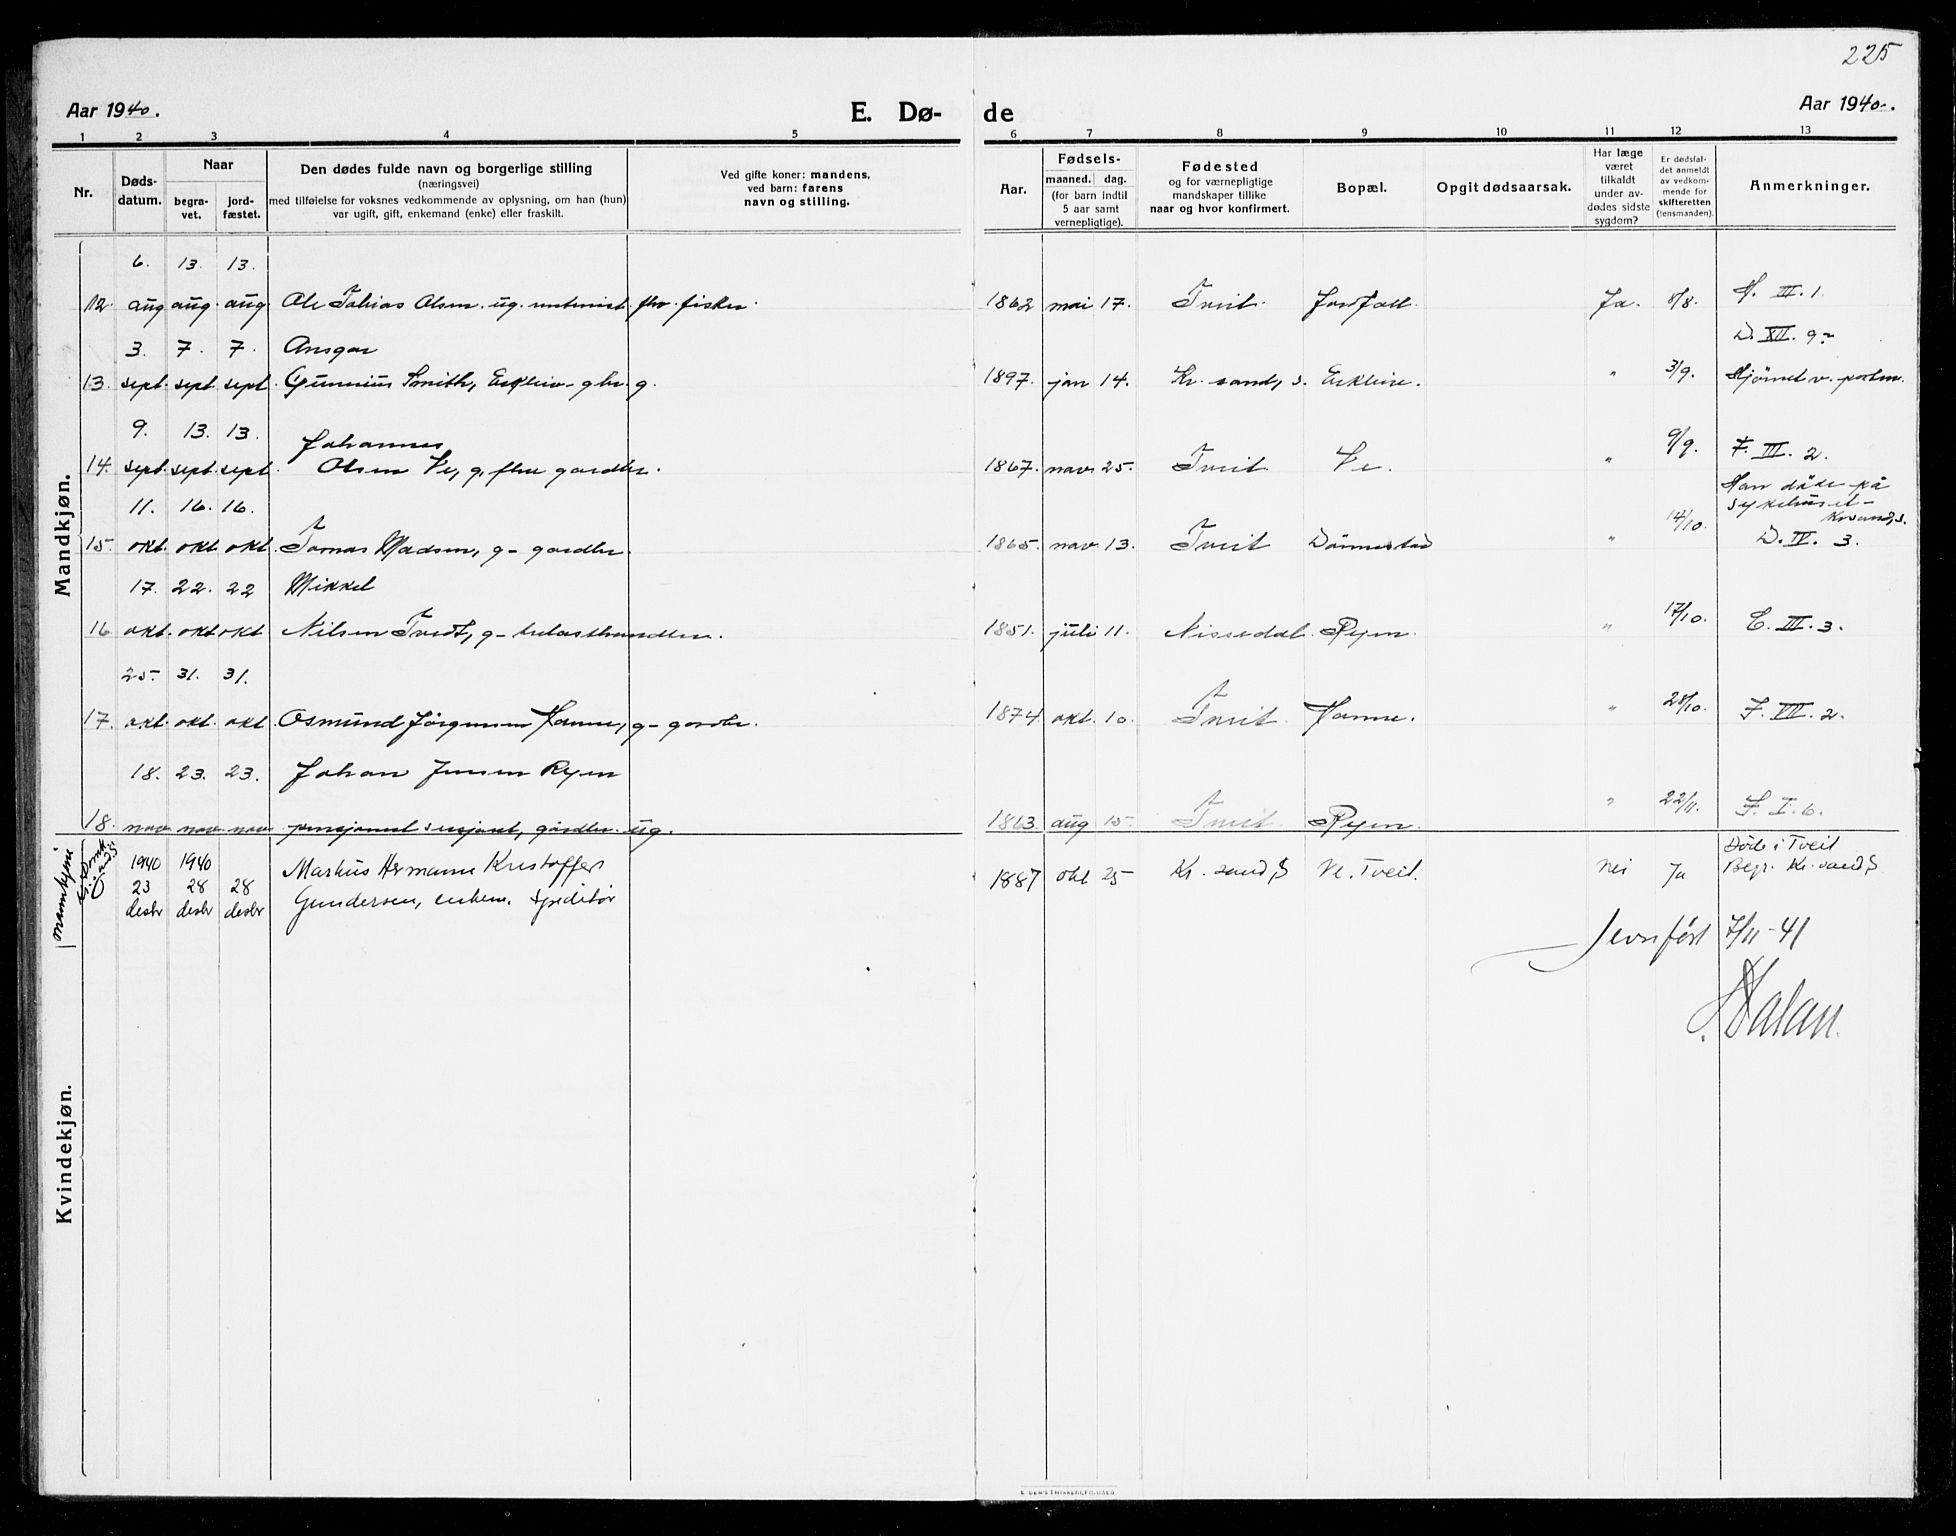 225
Aar 1940. E. Dø- de Aar 1940.
1 2 3 4 5 6 7 8 9 10 11 12 13
Nr.
Døds-
datum.
Naar
begra-
vet.
jord-
fæstet.
Den dødes fulde navn og borgerlige stilling
(næringsvei)
med tilføielse for voksnes vedkommende av oplysning, om han (hun)
var ugift, gift, enkemand (enke) eller fraskilt.
Ved gifte koner: mandens,
ved barn: farens
navn og stilling.
Aar.
Fødsels-
maaned. dag.
(for barn indtil
5 aar samt
vernepligtige).
Fødested
og for værnepligtige
mandskaper tillike
naar og hvor konfirmert.
Bopæl.
Opgit dødsaarsak.
Har læge
været
tilkaldt
under av-
dødes sidste
sygdom?
Er dødsfal-
det anmeldt
av vedkom-
mende for
skifteretten
(lensmanden).
Anmerkninger.
Mandkjøn.
6. 13. 13.
12. aug aug. aug. Ole Tobias Olsen. ug. fhv. fisker. 1862 mai 17. Tveit. Ja. 8/8. H. III. 1.
3. 7. 7. Ansgar D. XII. 9
13. sept. sept. sept. Gunnius Smith, g. 1897. jan 14. Kr. sand, S. " 3/9. Hjørnet v. porten.
9. 13. 13. Johannes
14. sept. sept. sept. Olsen Ve, g. gårdbr. 1867. nov. 25. Tveit Ve. " 9/9. F. III. 2.
Han døde på
sykehuset
Krsand, S.
11. 16. 16.
15. okt. okt. okt. Tomas Madsen, g- gårdbr. 1865. nov. 13. Tveit Dønnestad " 14/10. D. IV. 3.
17. 22. 22 Mikkel
16 okt. okt okt Nilsen Tvedt, g- 1851. juli 11. Nissedal. Ryen. " 17/10. E. III. 3.
25. 31. 31.
17. okt. okt. okt Osmund Jørgensen Hamre, g- gårdbr. 1874. okt. 10. Tveit. Hamre. " 28/10. F. VII. 2.
18. 23. 23. Johan Jensen Ryen
18. nov. nov. nov. pensjonert sersjant, gårdbr. ug. 1863. aug 15. Tveit. Ryen. " 22/11. F. I. 6.
Kvindekjøn.
mannkjønn
1940 1940 Markus Hermann Kristoffer Døde i Tveit
23 28 28 1887 okt 25 Kr. sand, S Ve. Tveit. Nei Ja Begr. Kr. sand, S
desbr desbr desbr Gundersen, enkem. speditør
Jevnført 7/11-41